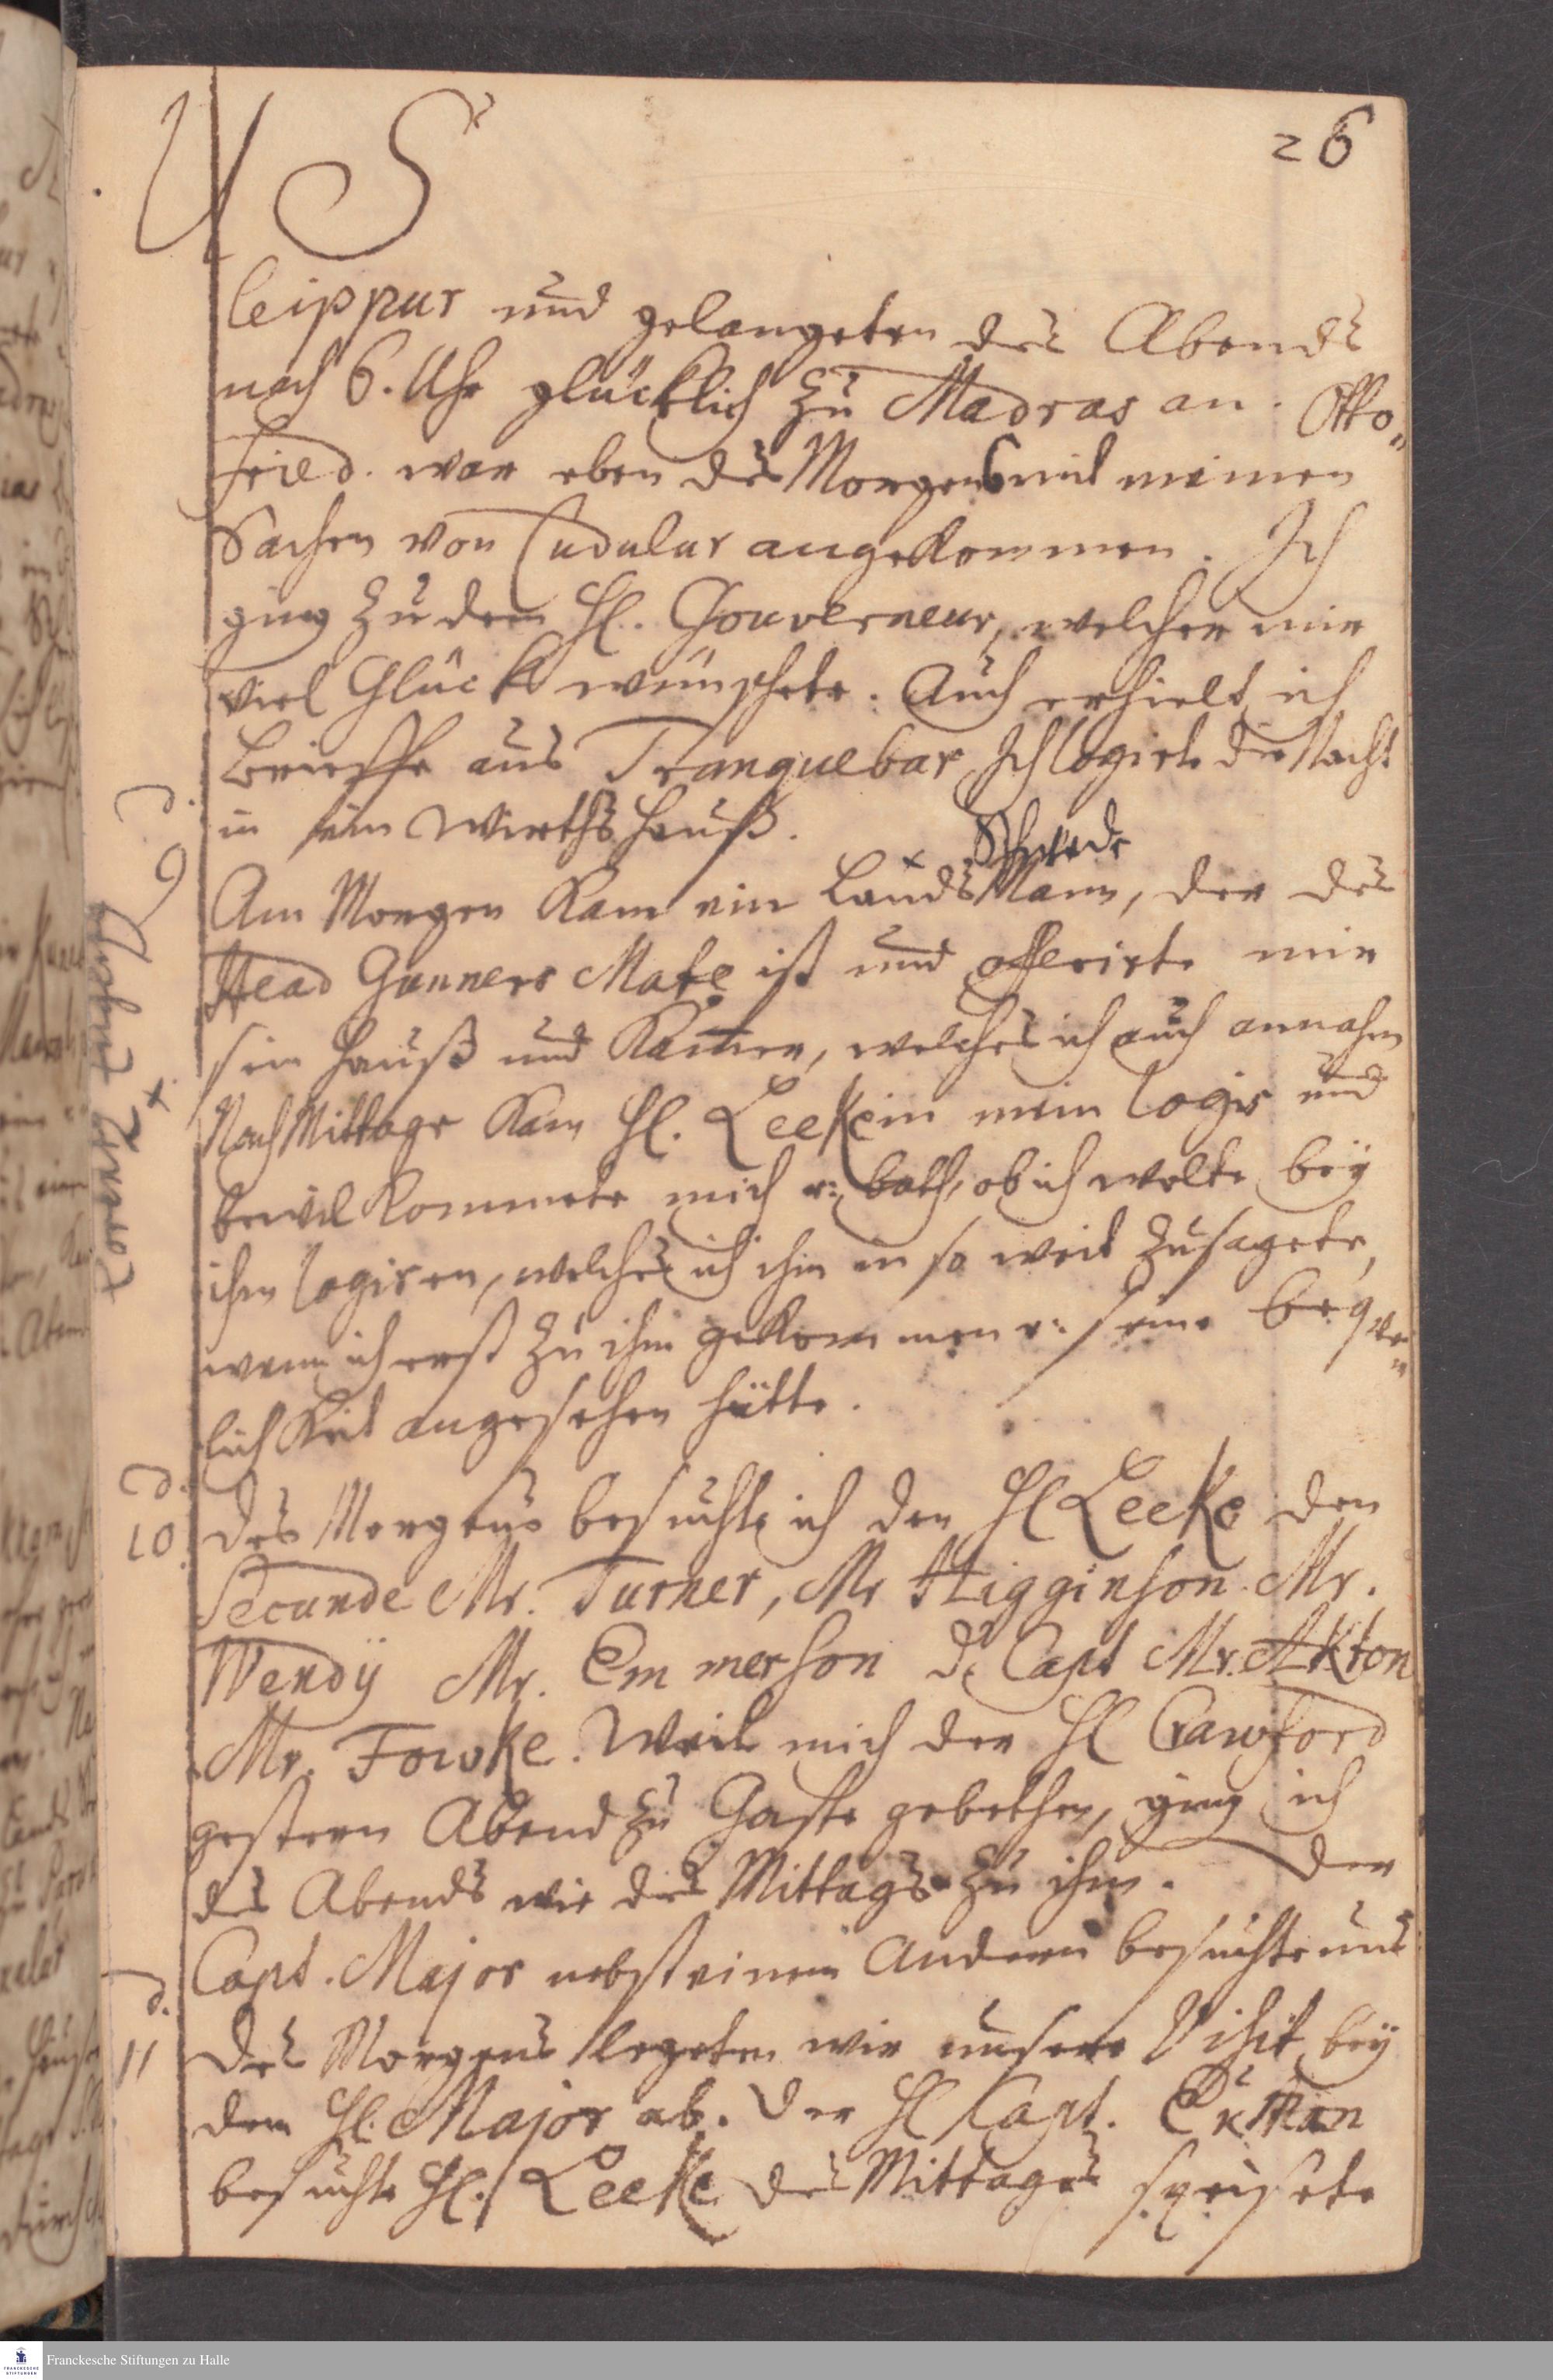 26
leippur und gelangeten des Abends
nach 6. Uhr glücklich zu Madras an. Otto-
fried. war eben des Morgens mit meinen
Sachen von Cudulur angekommen. Ich
ging zu dem H. Gouverneur, welcher mir
viel Glück wünschete. Auch erhielt ich
Brieffe aus Tranquebar Ich logirte die Nacht
in ein Wirthshauß.
d.
9
Schwede
Am Morgen kam ein LandsMann, der des
Head Gunners Mate ist und offerirte mir
sein Hauß und Kamer, welches ich auch annahm
NachMittage kam H. Leeke in mein logis und
bewilkommete mich u: bath, ob ich wolte bey
ihm logiren, welches ich ihm in so weit zusagete,
wenn ich erst zu ihm gekommen u: seine beque-
lichkeit angesehen hätte.
d.
10.
Des Morgens besuchte ich den H Leeke den
Secunde Mr. Turner, Mr Higginson. Mr.
Wendÿ Mr. Emmerson d. Capt Mr. Akton
Mr. Fowke. Weil mich der H Crawford
gestern Abend zu Gaste gebethen, ging ich
des Abends wie des Mittags zu ihm. Der
Capt. Major nebst einem Andern besuchte uns
d.
11
Des Morgens legeten wir unsere Visit bey
dem H. Major ab. Der H Capt. Eckman
besuchte H. Leeke des Mittages speisete
Franckesche Stiftungen zu Halle